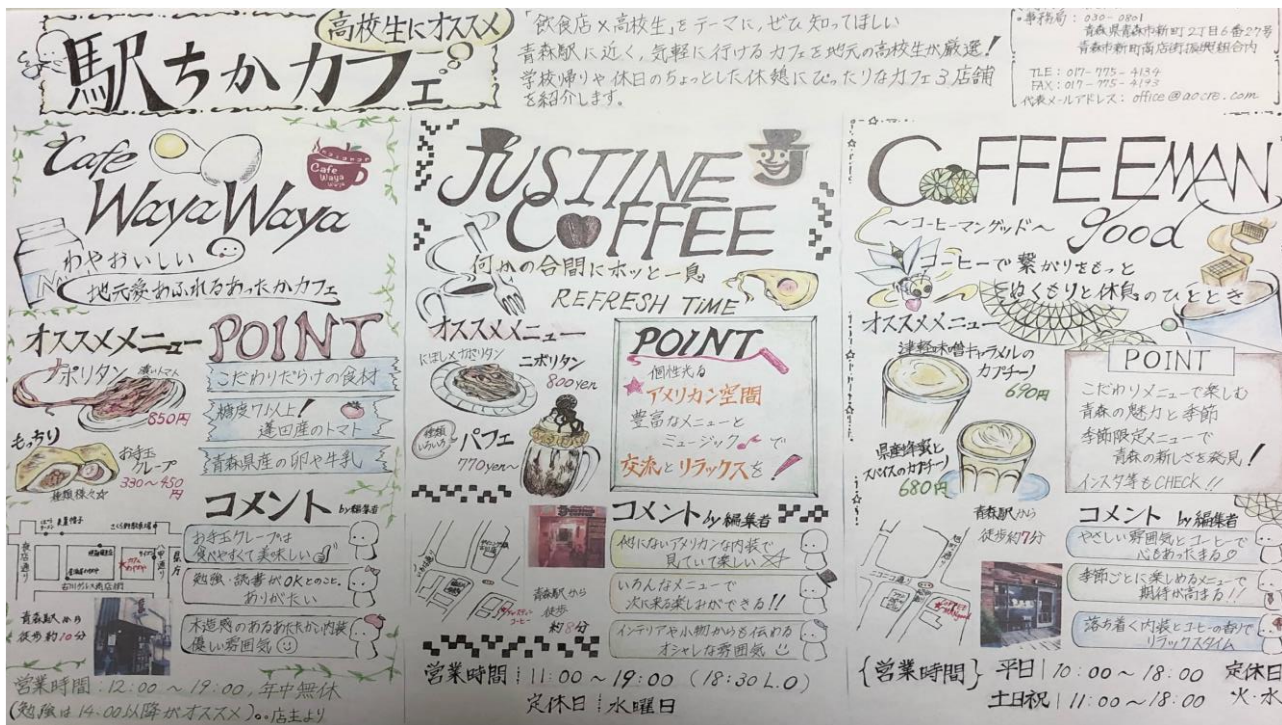 高校生にオススメ
駅ちかカフェ
「飲食店×高校生」をテーマに、ぜひ知ってほしい
青森駅に近く、気軽に行けるカフェを地元の高校生が厳選!
学校帰りや休日のちょっとした休憩にぴったりなカフェ3店舗
を紹介します。
・事務局:030-0801
青森県青森市新町2丁目6番27号
青森市新町商店街振興組合内
TLE:017-775-4134
FAX:017-775-4193
代表メールアドレス:office@aocre.com
Cafe
WayaWaya
Cafe
Waya
わやおいしい
地元愛あふれるあったかカフェ
オススメメニュー
ナポリタン
濃いトマト
850円
もっちり
お手玉
クレープ
330〜450
円
種類様々☆
POINT
こだわりだらけの食材
糖度7以上!
蓬田産のトマト
青森県産の卵や牛乳
コメント by編集者
お手玉クレープは
食べやすくて美味しい
勉強・読書がOKとのこと。
ありがたい
木造感のあるあたたかい内装
優しい雰囲気
青森駅から
徒歩約10分
営業時間:12:00〜19:00,年中無休
(勉強は14:00以降がオススメ)。。店主より
JUSTINE
COFFEE
何かの合間にホッと一息
REFRESH TIME
オススメメニュー
にぼし×ナポリタン
ニボリタン
800yen
種類いろいろ
パフェ
770yen〜
POINT
個性光る
アメリカン空間
豊富なメニューと
ミュージック♪で
交流とリラックスを!
コメント by編集者
他にないアメリカンな内装で
見ていて楽しい☆
いろんなメニューで
次に来る楽しみができる!!
インテリアや小物からも伝わる
オシャレな雰囲気
青森駅から
徒歩
約8分
営業時間 11:00〜19:00(18:30L.O)
定休日 水曜日
COFFEEMAN
good
〜コーヒーマングッド〜
コーヒーで繋がりをもっと
ぬくもりと休息のひととき
オススメメニュー
津軽味噌キャラメルの
カプチーノ
690円
県産蜂蜜と
スパイスのカプチーノ
680円
POINT
こだわりメニューで楽しむ
青森の魅力と季節
季節限定メニューで
青森の新しさを発見!
インスタ等もCHECK!!
コメント by編集者
やさしい雰囲気とコーヒーで
心もあったまる♡
季節ごとに楽しめるメニューで
期待が高まる!!
落ち着く内装とコーヒーの香りで
リラックスタイム
青森駅から
徒歩約7分
ニコニコ通り
{営業時間} 平日 10:00〜18:00 定休日
土日祝 11:00〜18:00 火・水